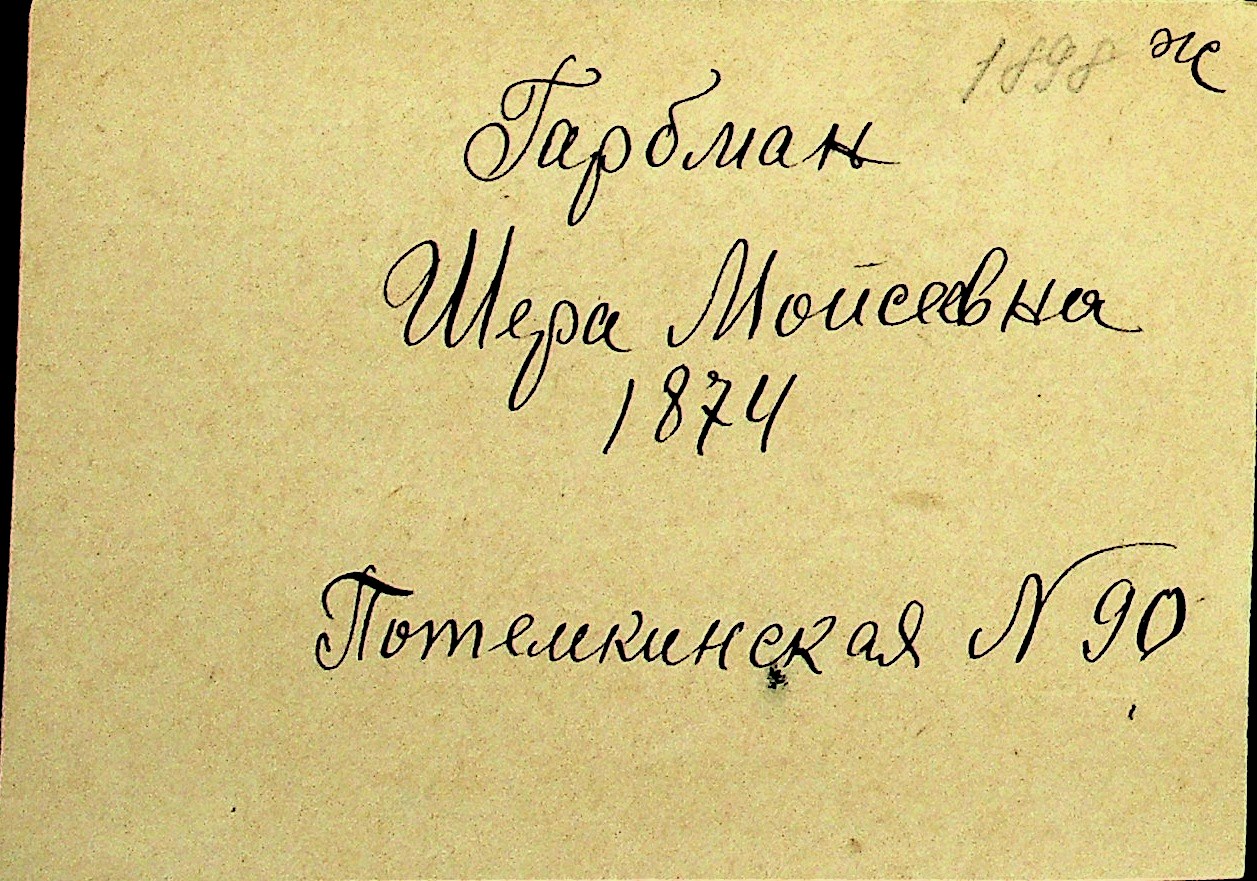 1898 ж
Гарбман
Шера Мойсеевна
1874
Потемкинская N 90